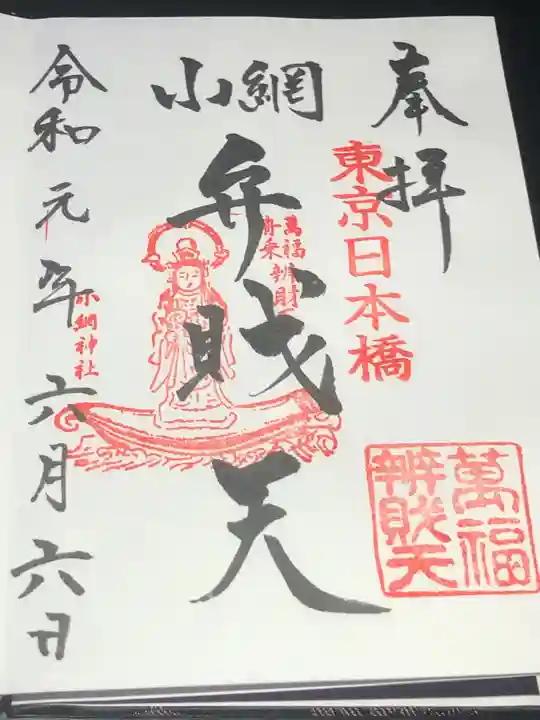 奉拝
東京日本橋
小網
弁財天
萬福
舟乗弁財天
小網神社
萬福
辨財天
令和元年六月六日